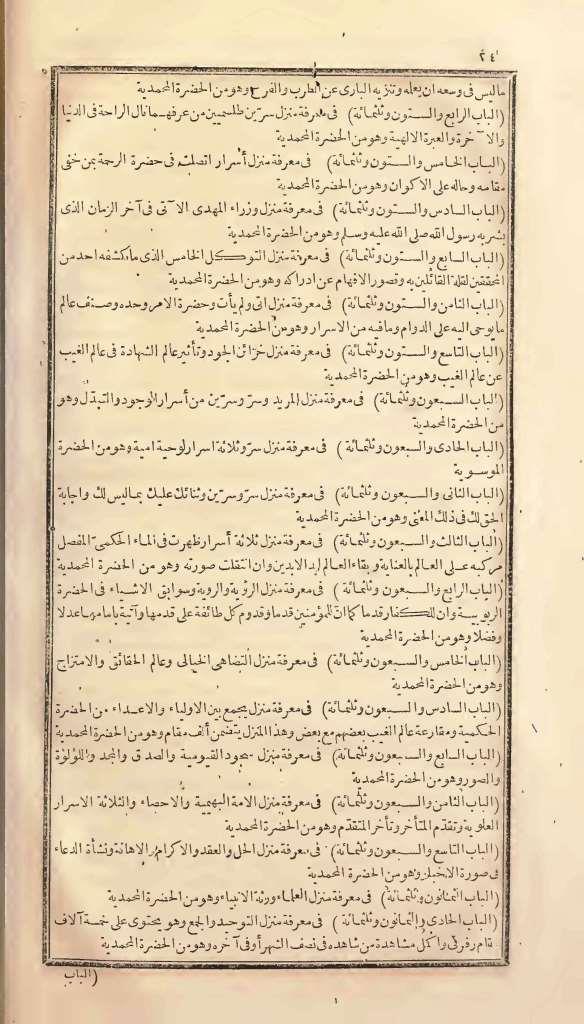 ٢٤
ما ليس فى وسعه ان يعمله وتنزيه البارى عن الطرب والفرح وهو من الحضرة المحمدية
(الباب الرابع والستون وثلثمائة) فى معرفة منزل سرين طلسميين من عرفهما نال الراحة فى الدنيا
والآخرة والغيرة الالهية وهو من الحضرة المحمدية
(الباب الخامس والستون وثلثمائة) فى معرفة منزل أسرار اتصلت فى حضرة الرحمة بمن خفى
مقامه وحاله على الاكوان وهو من الحضرة المحمدية
(الباب السادس والستون وثلثمائة) فى معرفة منزل وزراء المهدى الآتى فى آخر الزمان الذى
بشر به رسول الله صلى الله عليه وسلم وهو من الحضرة المحمدية
(الباب السابع والستون وثلثمائة) فى معرفة منزل التوكل الخامس الذى ما كشفه احد من
المحققين لقلة القائلين به وقصور الافهام عن ادراكه وهو من الحضرة المحمدية
(الباب الثامن والستون وثلثمائة) فى معرفة منزل اتى ولم يأت وحضرة الامر وحده وصنف عالم
ما يوحى اليه على الدوام وما فيه من الاسرار وهو من الحضرة المحمدية
(الباب التاسع والستون وثلثمائة) فى معرفة منزل خزائن الجود وتأثير عالم الشهادة فى عالم الغيب
عن عالم الغيب وهو من الحضرة المحمدية
(الباب السبعون وثلثمائة) فى معرفة منزل المريد وسر وسرين من أسرار الوجود والتبدل وهو
من الحضرة المحمدية
(الباب الحادى والسبعون وثلثمائة) فى معرفة منزل سر وثلاثة اسرار لوحية امية وهو من الحضرة
الموسوية
(الباب الثانى والسبعون وثلثمائة) فى معرفة منزل سر وسرين وثنائك عليك بما ليس لك واجابة
الحق لك فى ذلك المعنى وهو من الحضرة المحمدية
(الباب الثالث والسبعون وثلثمائة) فى معرفة منزل ثلاثة أسرار ظهرت فى الماء الحكمى المفصل
مركبه على العالم بالعناية وبقاء العالم ابد الابدين وان انتقلت صورته وهو من الحضرة المحمدية
(الباب الرابع والسبعون وثلثمائة) فى معرفة منزل الرؤية والروية وسوابق الاشياء فى الحضرة
الربوبية وان للكفار قدما كما ان للمؤمنين قدما وقدوم كل طائفة على قدمها وآتية بامامها عدلا
وفضلا وهو من الحضرة المحمدية
(الباب الخامس والسبعون وثلثمائة) فى معرفة منزل التضاهى الخيالى وعالم الحقائق والامتزاج
وهو من الحضرة المحمدية
(الباب السادس والسبعون وثلثمائة) فى معرفة منزل يجمع بين الاولياء والاعداء من الحضرة
الحكمية ومقارعة عالم الغيب بعضهم مع بعض وهذا المنزل يتضمن ألف مقام وهو من الحضرة المحمدية
(الباب السابع والسبعون وثلثمائة) فى معرفة منزل سجود القيومية والصدق والمجد واللؤلؤة
والصور وهو من الحضرة المحمدية
(الباب الثامن والسبعون وثلثمائة) فى معرفة منزل الامة البهيمية والاحصاء والثلاثة الاسرار
العلوية وتقدم المتأخر وتأخر المتقدم وهو من الحضرة المحمدية
(الباب التاسع والسبعون وثلثمائة) فى معرفة منزل الحل والعقد والاكرام والاهانة ونشأة الدعاء
فى صورة الاخبار وهو من الحضرة المحمدية
(الباب الثمانون وثلثمائة) فى معرفة منزل العلماء ورثة الانبياء وهو من الحضرة المحمدية
(الباب الحادى والثمانون وثلثمائة) فى معرفة منزل التوحيد والجمع وهو يحتوى على خمسة آلاف
مقام رفرفى وأكمل مشاهده من شاهده فى نصف الشهر أو فى آخره وهو من الحضرة المحمدية
(الباب